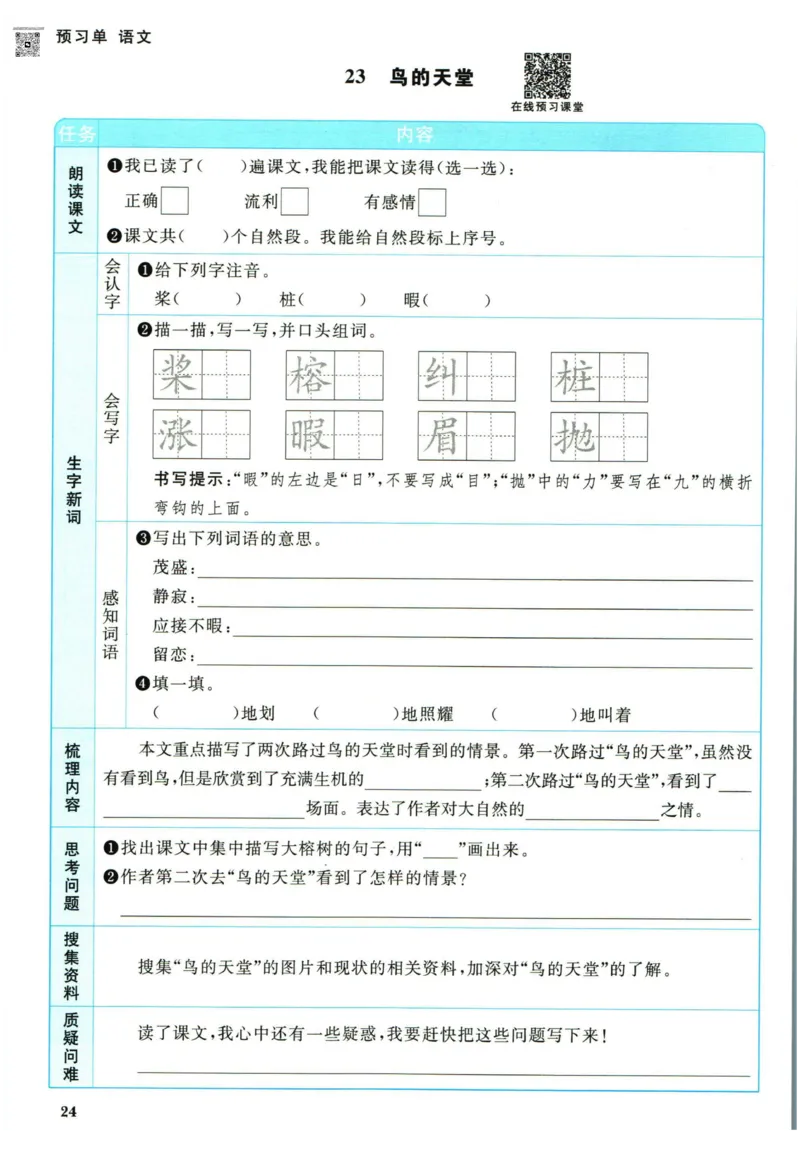 预习单 语文
23 鸟的天堂
在线预习课堂
任务 内容
朗读课文
❶我已读了( )遍课文,我能把课文读得(选一选):
正确 流利 有感情
❷课文共( )个自然段。我能给自然段标上序号。
生字新词
会认字
❶给下列字注音。
桨( ) 桩( ) 暇( )
会写字
❷描一描,写一写,并口头组词。
桨 榕 纠 桩
涨 暇 眉 抛
书写提示:“暇”的左边是“日”,不要写成“目”;“抛”中的“力”要写在“九”的横折
弯钩的上面。
感知词语
❸写出下列词语的意思。
茂盛:
静寂:
应接不暇:
留恋:
❹填一填。
( )地划 ( )地照耀 ( )地叫着
梳理内容
本文重点描写了两次路过鸟的天堂时看到的情景。第一次路过“鸟的天堂”,虽然没
有看到鸟,但是欣赏到了充满生机的____;第二次路过“鸟的天堂”,看到了____
____场面。表达了作者对大自然的____之情。
思考问题
❶找出课文中集中描写大榕树的句子,用“____”画出来。
❷作者第二次去“鸟的天堂”看到了怎样的情景?
搜集资料
搜集“鸟的天堂”的图片和现状的相关资料,加深对“鸟的天堂”的了解。
质疑问难
读了课文,我心中还有一些疑惑,我要赶快把这些问题写下来!
24